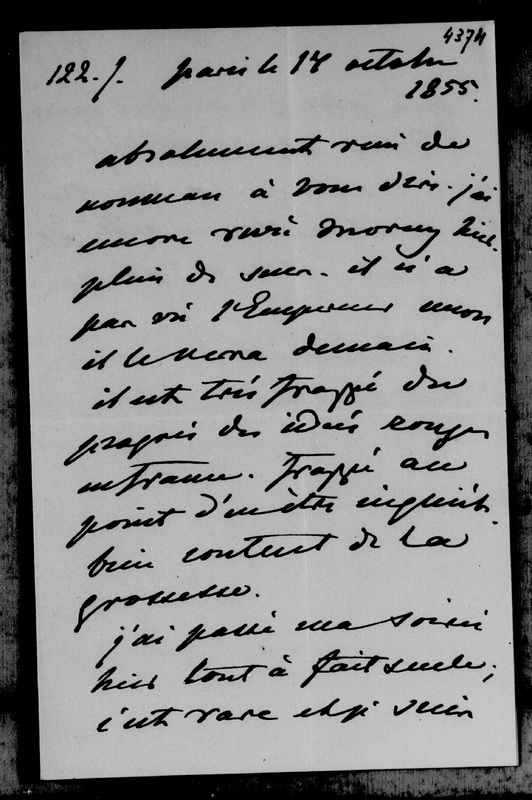 4374
122. J. paris le 14 octobre
1855.
absolument rien de
nouveau à vous dire. j'ai
encore revu Morny hier.
plein de sens. il n'a
pas vu l'Empereur encore
il le verra demain.
il est très frappé du
progrès des idées rouges
en france. frappé au
point d'en être inquiet.
bien content de la
grossesse.
j'ai passé ma soirée
hier tout à fait seule;
c'est rare et je suis